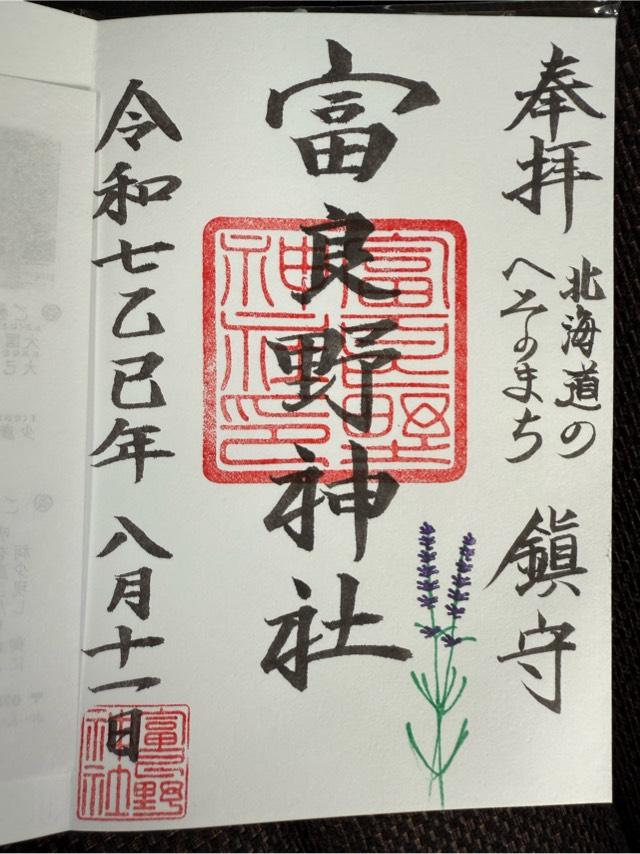 奉拝
北海道の
へそのまち
鎮守
富良野神社
富良野神社印
令和七乙巳年 八月十一日
富良野神社